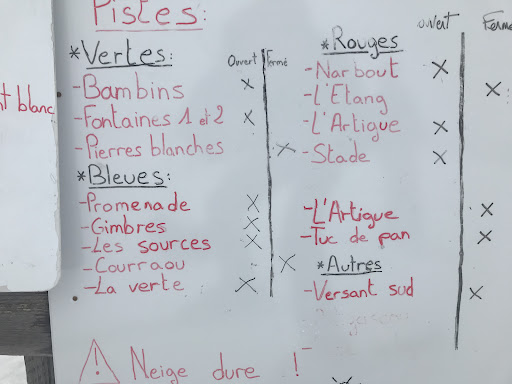 Pistes:
t blanc
*Vertes: Ouvert Fermé
-Bambins X
-Fontaines 1 et 2 X
-Pierres blanches X
*Bleues:
-Promenade X
-Gimbres X
-Les sources X
-Courraou X
-La verte X
*Rouges ouvert Fermé
-Narbout X
-L'Etang X
-L'Artigue X
-Stade X
-L'Artigue X
-Tuc de pan X
*Autres
-Versant sud X
⚠ Neige dure !